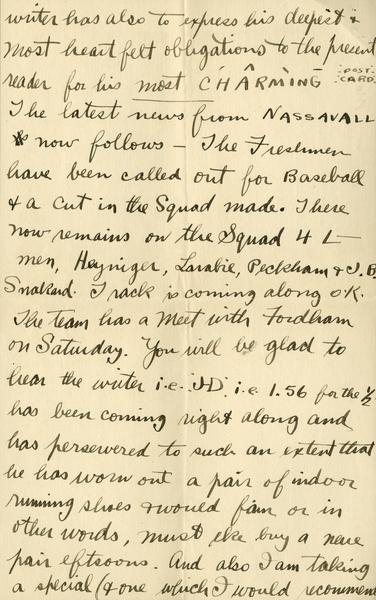 writer has also to express his deepest &
most heart felt obligations to the present
reader for his most CHARMING POST CARD
The latest news from NASSAVALL
now follows — The Freshmen
have been called out for Baseball
& a cut in the Squad made. There
now remains on the Squad 4 L—
men, Heyniger, Larabie, Peckham & J.B.
Snakard. Track is coming along O.K.
The team has a Meet with Fordham
on Saturday. You will be glad to
hear the writer i.e. "J-D" i.e. 1.56 for the 1/2
has been coming right along and
has persevered to such an extent that
he has worn out a pair of indoor
running shoes & would fain or in
other words, must eke buy a new
pair eftsoons. And also I am taking
a special (& one which I would recommend